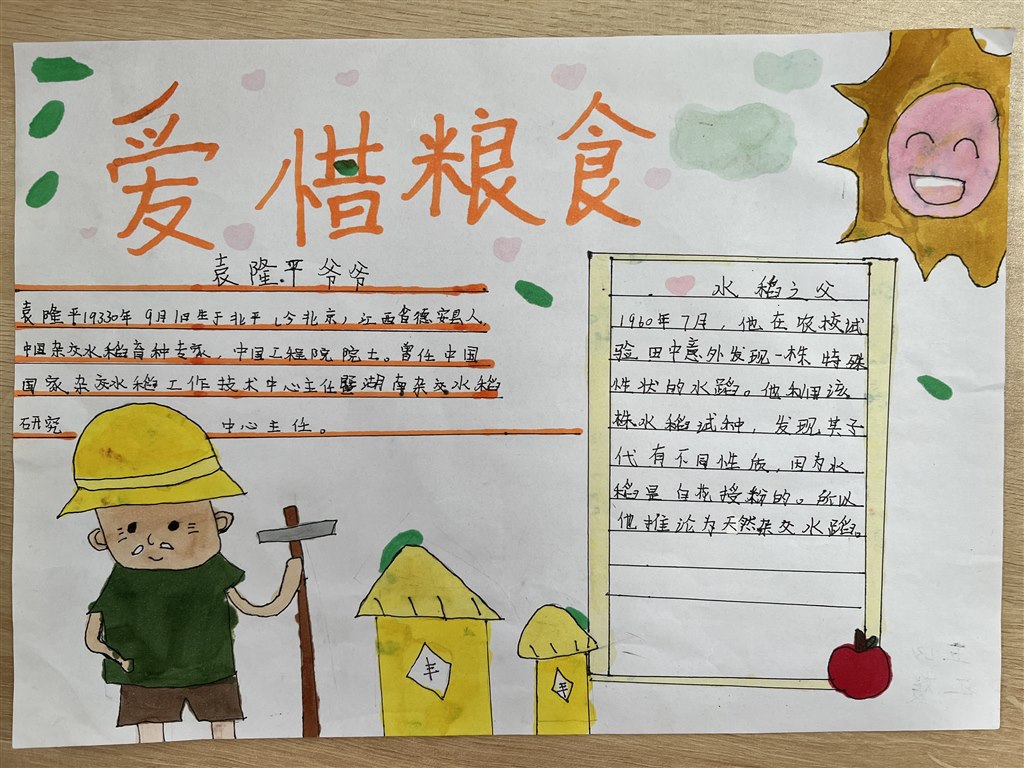 爱惜粮食
袁隆平爷爷
袁隆平19330年9月1日生于北平(今北京)江西省德安县人,
中国杂交水稻育种专家,中国工程院院士。曾任中国
国家杂交水稻工作技术中心主任暨湖南杂交水稻
研究 中心主任。
水稻之父
1960年7月,他在农校试
验田中意外发现一株特殊
性状的水蹈。他利用该
株水稻试种,发现其子
代有不同性质,因为水
稻是自花授粉的。所以
他推论为天然杂交水蹈。
丰
丰